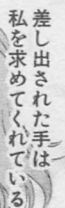 差し出された手は
私を求めてくれている